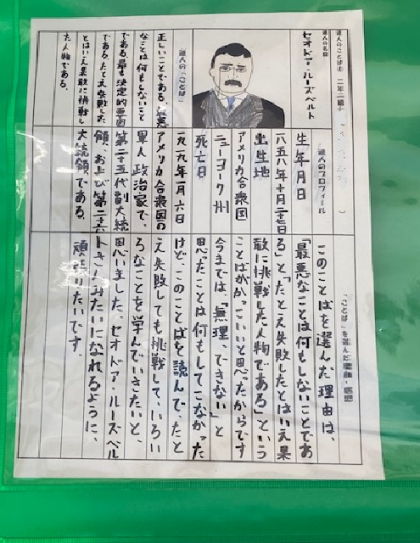 偉人のことば④ 二年二組
偉人の名前
セオドア・ルーズベルト
偉人の「ことば」
正しいことである。最悪
なことは何もしないこと
である。
とはいえ果敢に挑戦し
た人物である。
偉人のプロフィール
生年月日
一八五八年十月二十七日
出生地
アメリカ合衆国
ニューヨーク州
死亡日
一九一九年一月六日
アメリカ合衆国の
軍人、政治家で、
第二十五代副大統
領、および第二十六
大統領である。
「ことば」を選んだ理由・感想
このことばを選んだ理由は、
「最悪なことは何もしないことであ
る」と「たとえ失敗したとはいえ果
敢に挑戦した人物である」という
ことばがかっこいいと思ったからです
今までは「無理、できない」と
思ったことは何もしてこなかった
けど、このことばを読んで、たと
え失敗しても挑戦して、いろい
ろなことを学んでいきたいと、
思いました。セオドア・ルーズベル
トさんみたいになれるように、
頑張りたいです。